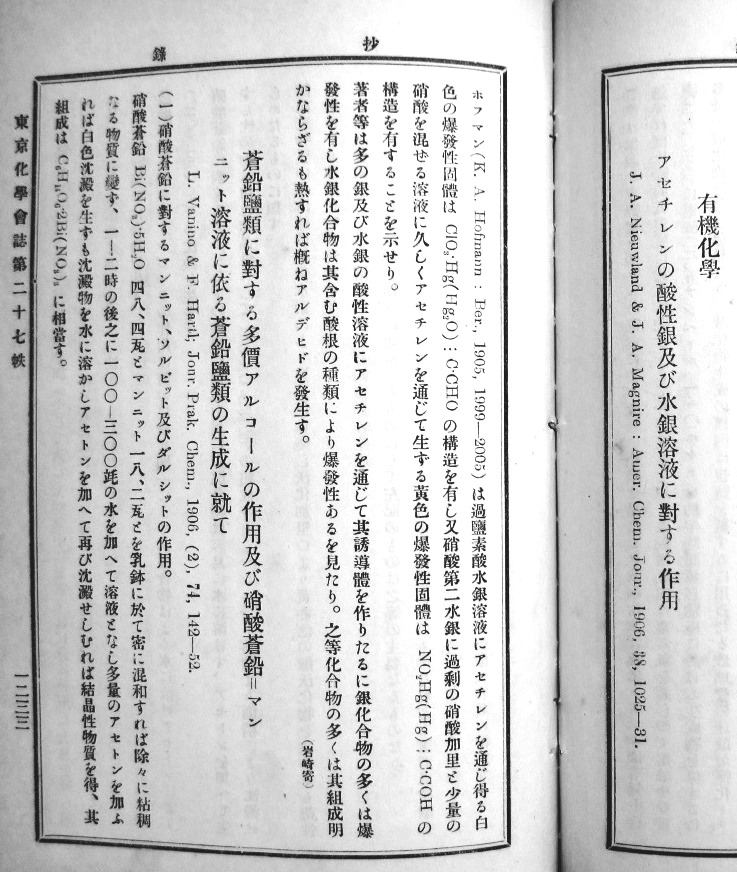 有機化學
アセチレンの酸性銀及び水銀溶液に對する作用
J. A. Nieuwland & J. A. Magnire : Amer. Chem. Jour., 1906, 38, 1025—31.
抄
錄
ホフマン(K. A. Hofmann : Ber., 1905, 1999—2005)は過鹽素酸水銀溶液にアセチレンを通じ得る白
色の爆發性固體は ClO₃·Hg(Hg₂O) : C·CHO の構造を有し又硝酸第二水銀に過剩の硝酸加里と少量の
硝酸を混せる溶液に久しくアセチレンを通じて生する黃色の爆發性固體は NO₃Hg(Hg) : C·COH の
構造を有することを示せり。
著者等は多の銀及び水銀の酸性溶液にアセチレンを通じて其誘導體を作りたるに銀化合物の多くは爆
發性を有し水銀化合物は其含む酸根の種類により爆發性あるを見たり。之等化合物の多くは其組成明
かならざるも熱すれば槪ねアルデヒドを發生す。
(岩崎寄)
蒼鉛鹽類に對する多價アルコールの作用及び硝酸蒼鉛=マン
ニット溶液に依る蒼鉛鹽類の生成に就て
L. Vanino & F. Hartl; Jour. Prak. Chem., 1906, (2), 74, 142—52.
(一)硝酸蒼鉛に對するマンニット、ソルビット及びダルシットの作用。
硝酸蒼鉛 Bi(NO₃)₃·5H₂O 四八、四瓦とマンニット一八、二瓦とを乳鉢に於て密に混和すれば除々に粘稠
なる物質に變ず、一—二時の後之に一〇〇—三〇〇竓の水を加へて溶液となし多量のアセトンを加ふ
れば白色沈澱を生すも沈澱物を水に溶かしアセトンを加へて再び沈澱せしむれば結晶性物質を得、其
組成は C₆H₁₄O₆·2Bi(NO₃)₃ に相當す。
東京化學會誌第二十七帙
一二三三